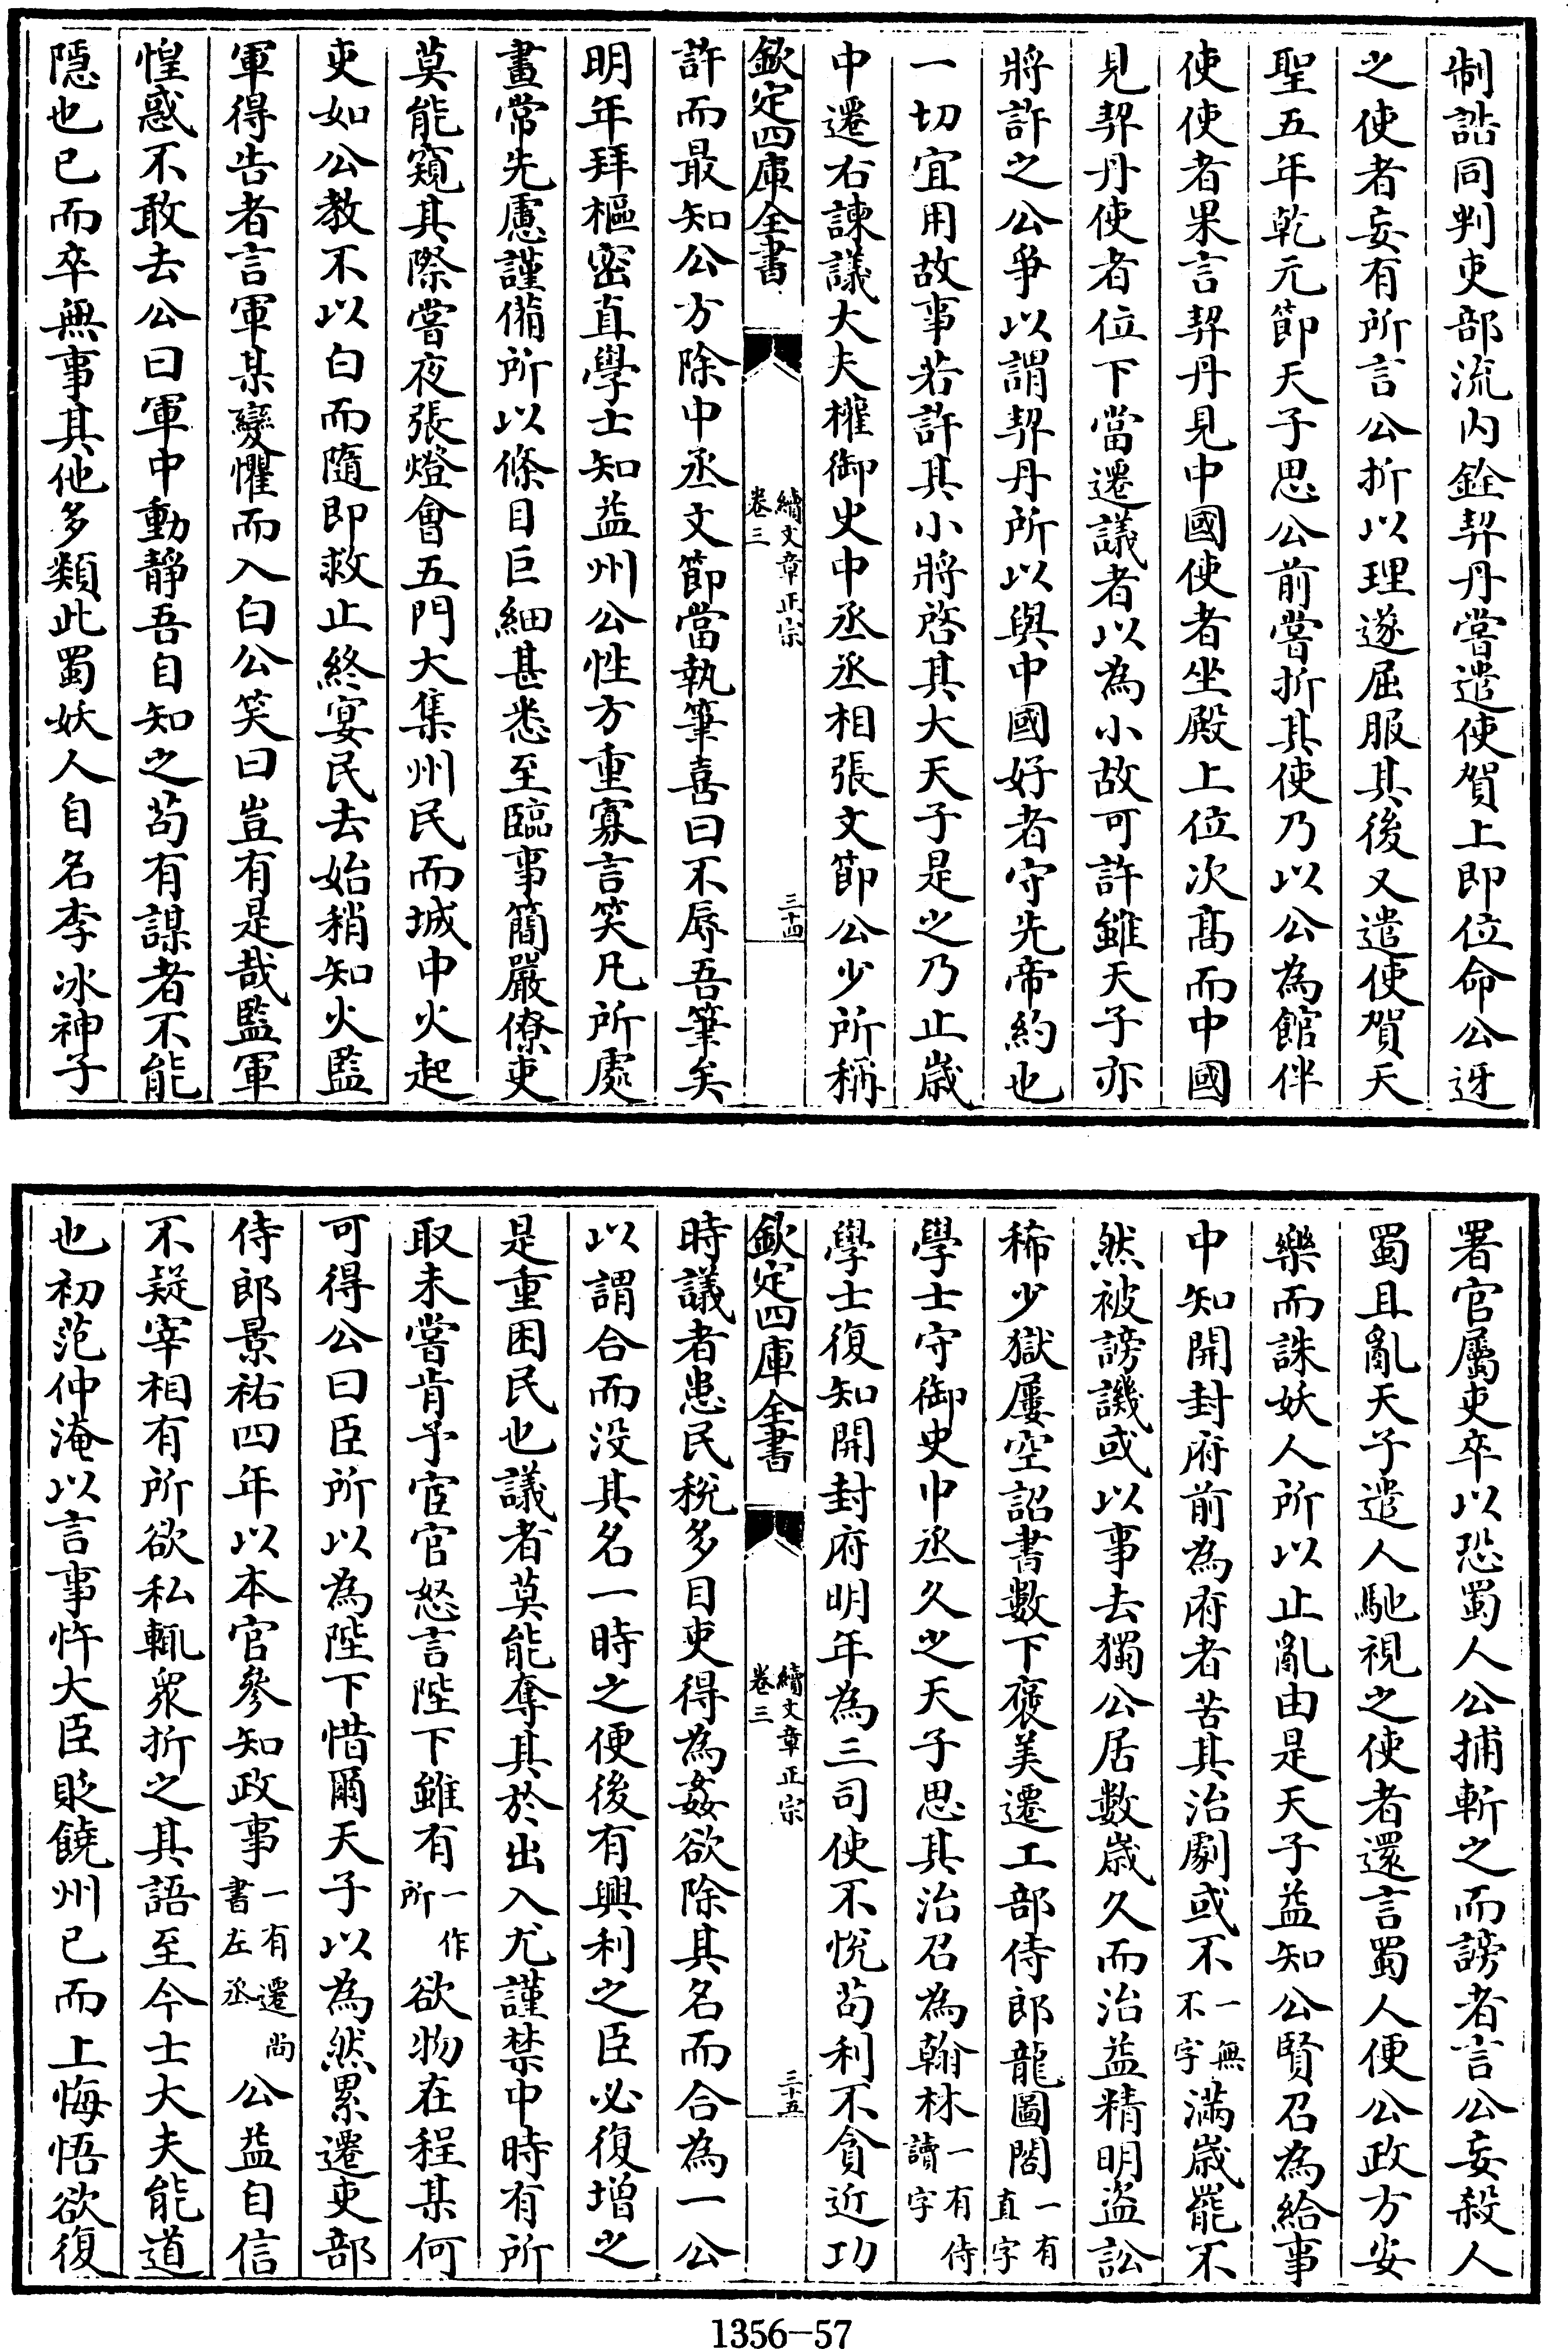 制誥同判吏部流内銓契丹嘗遣使賀上即位命公迓
之使者妄有所言公折以理遂屈服其後又遣使賀天
聖五年乾元節天子思公前嘗折其使乃以公為館伴
使使者果言契丹見中國使者坐殿上位次髙而中國
見契丹使者位下當遷議者以為小故可許雖天子亦
將許之公爭以謂契丹所以與中國好者守先帝約也
一切宜用故事若許其小將啓其大天子是之乃止歳
中遷右諫議大夫權御史中丞丞相張文節公少所稱
欽定四庫全書
續文章正宗
卷三
三十四
許而最知公方除中丞文節當執筆喜曰不辱吾筆矣
明年拜樞密直學士知益州公性方重寡言笑凡所處
畫常先慮謹備所以條目巨細甚悉至臨事簡嚴僚吏
莫能窺其際嘗夜張燈會五門大集州民而城中火起
吏如公教不以白而隨即救止終宴民去始稍知火監
軍得告者言軍某變懼而入白公笑曰豈有是哉監軍
惶惑不敢去公曰軍中動靜吾自知之苟有謀者不能
隠也已而卒無事其他多類此蜀妖人自名李氷神子
署官屬吏卒以恐蜀人公捕斬之而謗者言公妄殺人
蜀且亂天子遣人馳視之使者還言蜀人便公政方安
樂而誅妖人所以止亂由是天子益知公賢召為給事
中知開封府前為府者苦其治劇或不一無不字滿歳罷不
然被謗譏或以事去獨公居數歳久而治益精明盗訟
稀少獄屢空詔書數下褒美遷工部侍郎龍圖閣一有直字
學士守御史中丞久之天子思其治召為翰林一有侍讀字
學士復知開封府明年為三司使不悅苟利不貪近功
欽定四庫全書
續文章正宗
卷三
三十五
時議者患民稅多目吏得為姦欲除其名而合為一公
以謂合而沒其名一時之便後有興利之臣必復增之
是重困民也議者莫能奪其於出入尤謹禁中時有所
取未嘗肯予宦官怒言陛下雖有一作所欲物在程某何
可得公曰臣所以為陛下惜爾天子以為然累遷吏部
侍郎景祐四年以本官參知政事一有遷尚書左丞公益自信
不疑宰相有所欲私輒衆折之其語至今士大夫能道
也初范仲淹以言事忤大臣貶饒州已而上悔悟欲復
1356-57